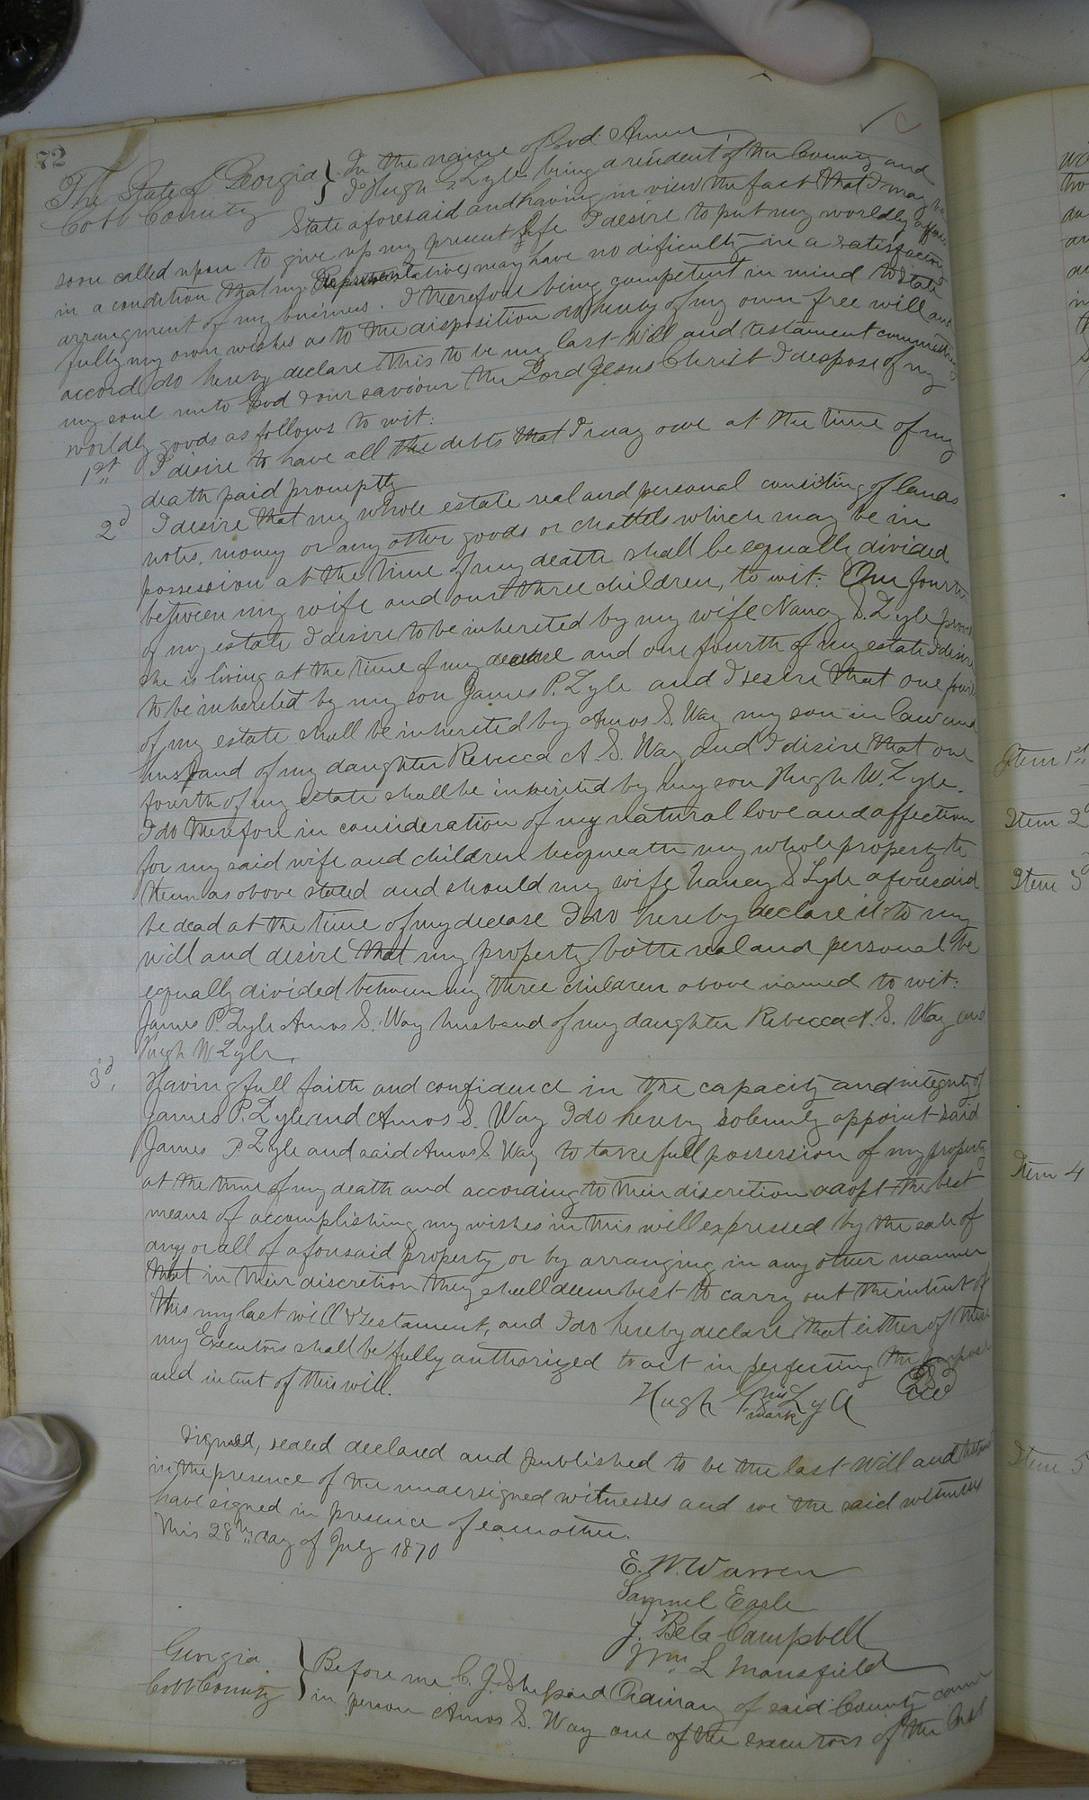 72
The State of Georgia } In the name of God Amen
Cobb County I Hugh Lyle being a resident of the County and
State aforesaid and having in view the fact that I may be
soon called upon to give up my present Life I desire to put my worldly affairs
in a condition that my Representatives may have no difficulty in a satisfactory
arrangment of my business. I therefore being competent in mind to state
fully my own wishes as to the disposition of my own free will and
accord do hereby declare this to be my last will and testament
my soul unto God & our saviour the Lord Jesus Christ I dispose of my
worldly goods as follows to wit:
1st I desire to have all the debts that I may owe at the time of my
death paid promptly
2d I desire that my whole estate real and personal consisting of lands
notes, money or any other goods or chattels which may be in
possession at the time of my death shall be equally divided
between my wife and our three children, to wit: One fourth
of my estate I desire to be inherited by my wife Nancy S. Lyle
she is living at the time of my decease and one fourth of my estate I desire
to be inherited by my son James P. Lyle and I desire that one fourth
of my estate shall be inherited by Amos S. Way my son in law and
husband of my daughter Rebecca A. S. Way and I disire that one
fourth of my estate shall be inherited by my son Hugh W. Lyle.
I do therefore in consideration of my natural love and affection
for my said wife and children bequeath my whole property to
them as above stated and should my wife Nancy S Lyle aforesaid
be dead at the time of my decease I do hereby declare it to my
will and desire that my property both real and personal be
equally divided between my three children above named to wit:
James P. Lyle Amos S. Way husband of my daughter Rebecca A. S. Way and
Hugh W Lyle.
3d. Having full faith and confidence in the capacity and integrity of
James P. Lyle and Amos S. Way I do hereby solemnly appoint said
James P. Lyle and said Amos S Way to take full possession of my property
at the time of my death and according to their discretion adopt the best
means of accomplishing my wishes in this will expressed by the sale of
any or all of aforesaid property or by arranging in any other manner
that in their discretion they shall deem best to carry out the intent of
this my last will & testament, and I do hereby declare that either of these
my Executors shall be fully authorized to act in perfecting the purpose
and intent of this will.
Hugh his Lyle
mark
Signed, sealed declared and published to be the last will and
in the presence of the undersigned witnesses and we the said witnesses
have signed in presence of eamother.
This 28th day of July 1870
E. W. Warren
Samuel Earle
J. Bela Campbell
Wm L Mansfield
Georgia } Before me C. J. Shepard Ordinary of said County came
Cobb County in person Amos S. Way one of the executors of the last
Item 1st
Item 2d
Item 3d
Item 4
Item 5